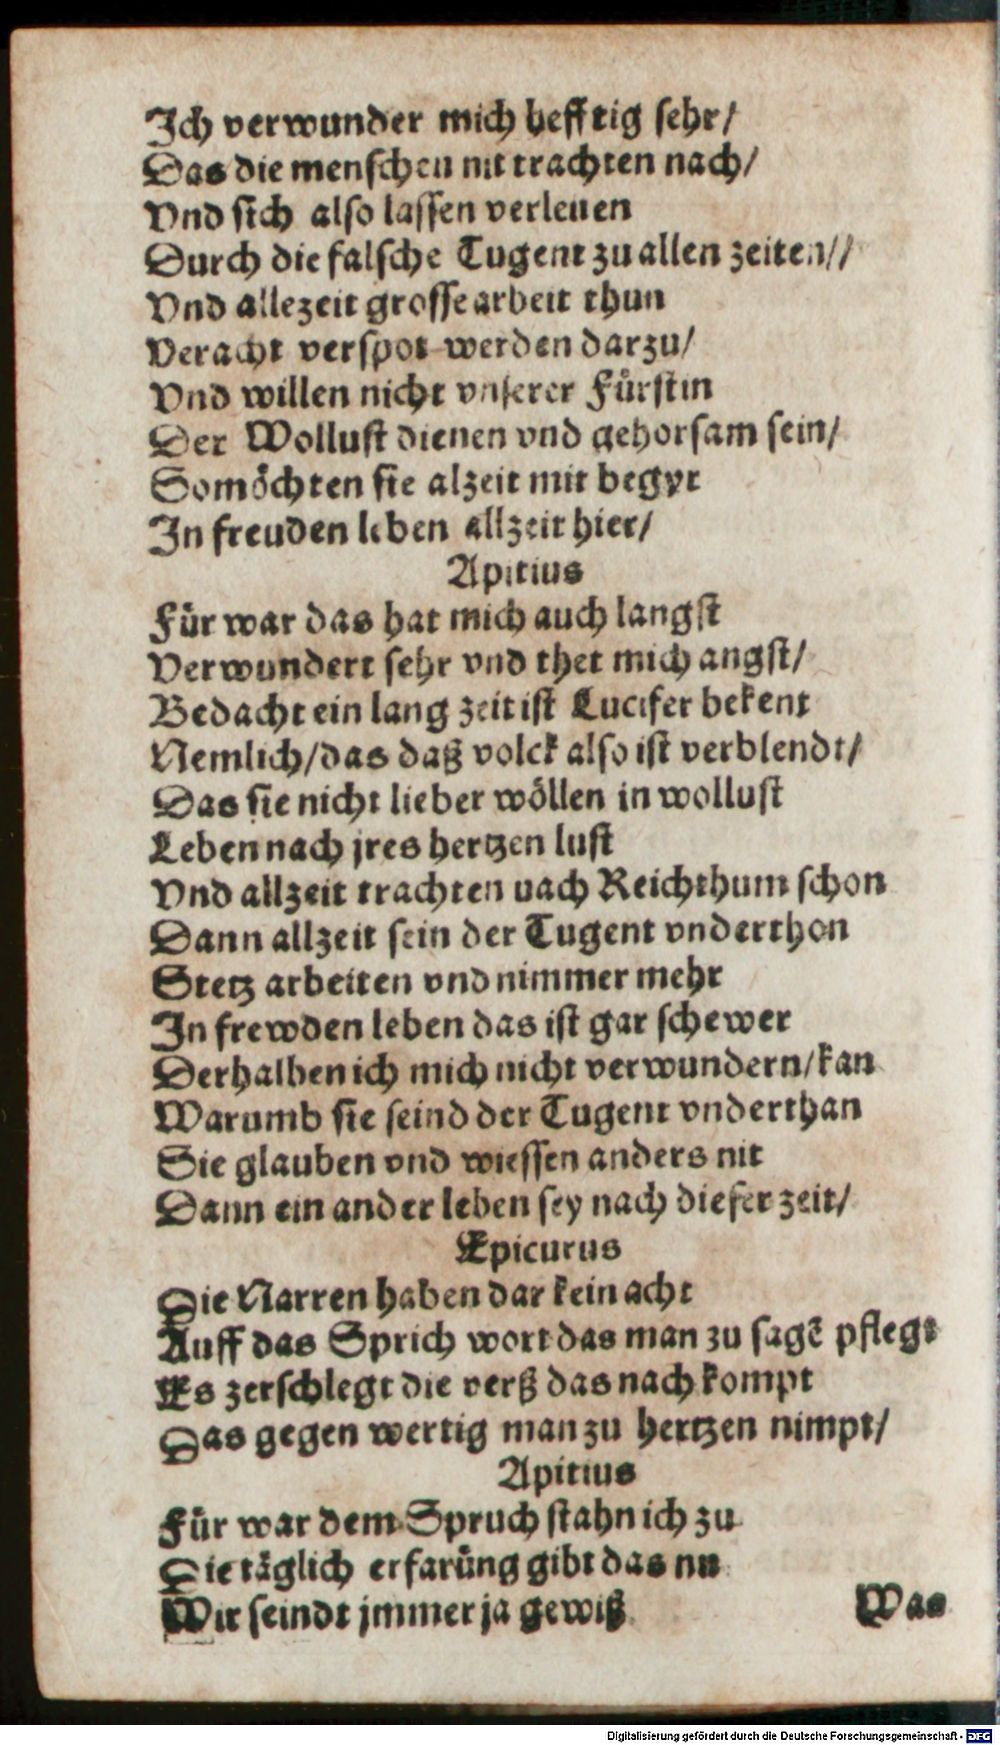 Ich verwunder mich hefftig sehr/
Das die menschen nit trachten nach/
Vnd sich also lassen verleuen
Durch die falsche Tugent zu allen zeiten//
Vnd allezeit grosse arbeit thun
Veracht verspot werden darzu/
Vnd willen nicht vnserer Fürstin
Der Wollust dienen vnd gehorsam sein/
So möchten sie alzeit mit begyr
In freuden leben allzeit hier/
Apitius
Für war das hat mich auch langst
Verwundert sehr vnd thet mich angst/
Bedacht ein lang zeit ist Lucifer bekent
Nemlich/das daß volck also ist verblendt/
Das sie nicht lieber wöllen in wollust
Leben nach jres hertzen lust
Vnd allzeit trachten uach Reichthum schon
Dann allzeit sein der Tugent vnderthon
Stetz arbeiten vnd nimmer mehr
In frewden leben das ist gar schewer
Derhalben ich mich nicht verwundern/kan
Warumb sie seind der Tugent vnderthan
Sie glauben vnd wiessen anders nit
Dann ein ander leben sey nach dieser zeit/
Epicurus
Die Narren haben dar kein acht
Auff das Sprich wort das man zu sagē pflegt
Es zerschlegt die verß das nach kompt
Das gegen wertig man zu hertzen nimpt/
Apitius
Für war dem Spruch stahn ich zu
Die täglich erfarüng gibt das nu
Wir seindt jmmer ja gewiß
Was
Digitalisierung gefördert durch die Deutsche Forschungsgemeinschaft - DFG